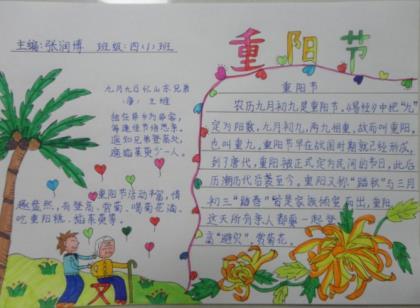 主编:张润博 班级:四(1)班
重阳节
九月九日忆山东兄弟
(唐)王维
独在异乡为异客,
每逢佳节倍思亲。
遥知兄弟登高处,
遍插茱萸少一人。
重阳节活动丰富,情
趣盎然,有登高、赏菊、喝菊花酒、
吃重阳糕、插茱萸等。
重阳节
农历九月初九是重阳节,《易经》中把“九”
定为阳数,九月初九,两九相重,故而叫重阳
也叫重九,重阳节早在战国时期就已经形成,
到了唐代,重阳被正式定为民间的节日,此后
历朝历代沿袭至今。重阳又称“踏秋”与三月
初三“踏春”皆是家族倾室而出,重阳
这天所有亲人都要一起登
高“避灾”,赏菊花。